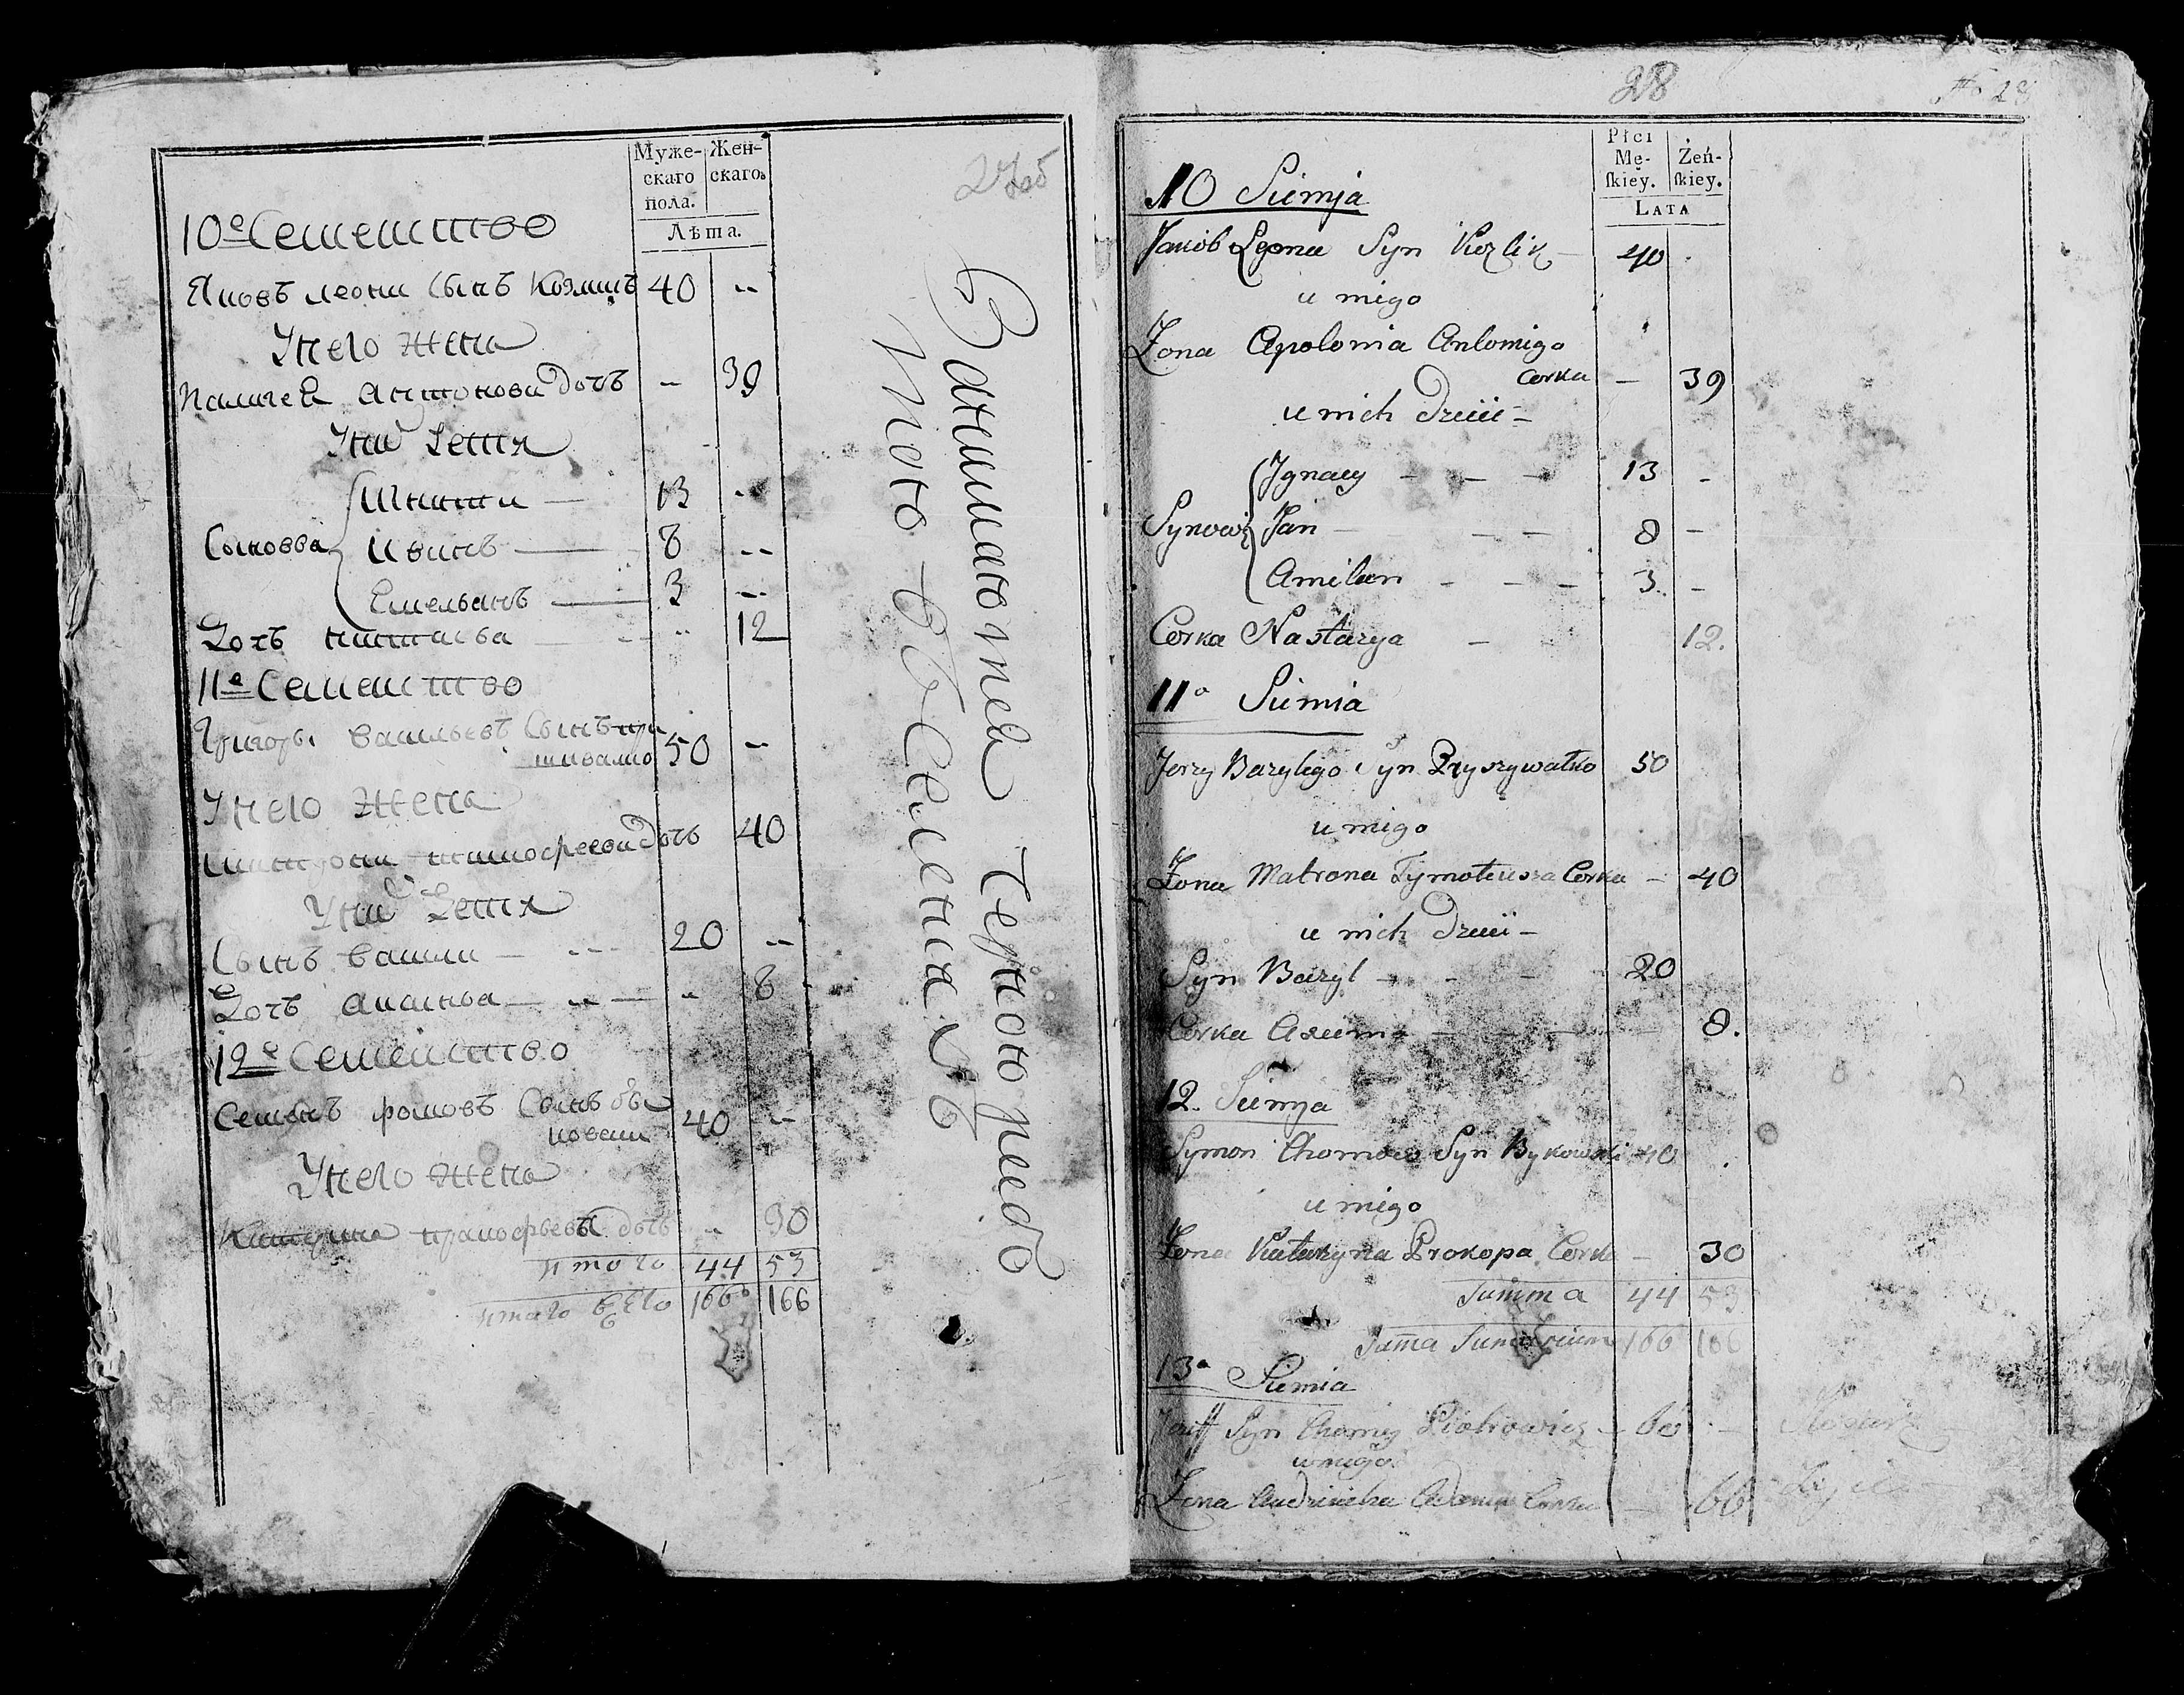 Муже-
скаго
пола.
Жен-
скаго.
Лѣта.
27об
10е Семеиство
Яковъ леона Сынъ Козликъ 40 --
Унего жена
палагея антонова дочь -- 39
Униъ Детя
Сыновья
Игнати — 13 --
Иванъ — 8 --
Емельянъ — 3 --
Дочь настасья — -- 12
11е Семеиство
Григоръи васильевъ Сынъ при
шивалко 50 --
Унего жена
матрона тимофеева дочь 40
Униъ Детя
Сынъ васили — -- 20 --
Дочь аксинья — -- — -- 8
12е Семеиство
Семенъ фомовъ Сынъ бы
ковски 40 --
Унего жена
Катерина пракофьева дочь -- 30
итого 44 53
итого всего 166 166
28
Płci
Mę-
ſkiey.
Żeń-
ſkiey.
LATA
10 Siemja
Jakób Leona Syn Kozlik — 40
u niego
Żona Apolonia Antoniego
Corka — 39
u nich Dzieci —
Synowie
Jgnacy - - - 13 -
Jan - - - 8 -
Amilian - - - 3 -
Corka Nastazya - 12.
11o Siemia
Jerzy Bazylego Syn Pryszywałko 50
u niego
Żona Matrona Tymoteusza Corka - 40
u nich Dzieci —
Syn Bazyl - - - 20
Corka Axienia - - - 8.
12. Siemja
Symon Chomow Syn Bykowski 40
u niego
Żona Katarzyna Prokopa Corka - 30
Summa 44 53
Suma Sumarium 166 166
13o Siemia
Syn Chomy Piotrowicz - 60 -
u niego
Żona Corka — 66